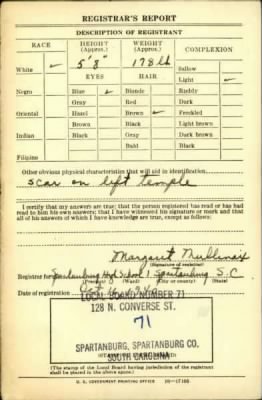 REGISTRAR'S REPORT
DESCRIPTION OF REGISTRANT
RACE
HEIGHT
(Approx.)
WEIGHT
(Approx.)
COMPLEXION
White ✓
5' 8"
178 lb
Sallow
EYES
HAIR
Light ✓
Negro
Blue ✓
Blonde
Ruddy
Gray
Red
Dark
Oriental
Hazel
Brown ✓
Freckled
Brown
Black
Light brown
Indian
Black
Gray
Dark brown
Bald
Black
Filipino
Other obvious physical characteristics that will aid in identification
scar on left temple
I certify that my answers are true; that the person registered has read or has had
read to him his own answers; that I have witnessed his signature or mark and that
all of his answers of which I have knowledge are true, except as follows:
Margaret Mullinax
(Signature of registrar)
Registrar for Spartanburg High School 1 Spartanburg S.C
(Precinct) (Ward) (City or county) (State)
Date of registration Oct. 16
LOCAL BOARD NUMBER 71
128 N. CONVERSE ST.
71
SPARTANBURG, SPARTANBURG CO.
SOUTH CAROLINA
(The stamp of the Local Board having jurisdiction of the registrant
shall be placed in the above space.)
U. S. GOVERNMENT PRINTING OFFICE 16—17105